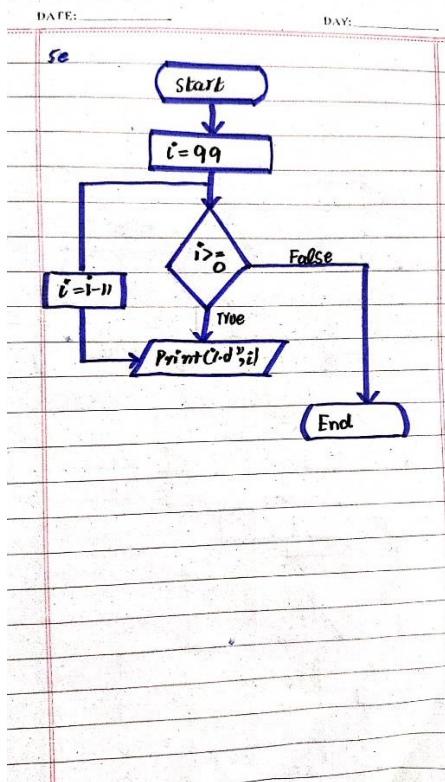 DATE:
DAY:
5e
Start
i = 99
i >= 0
False
i = i-11
True
Print("%d", i)
End